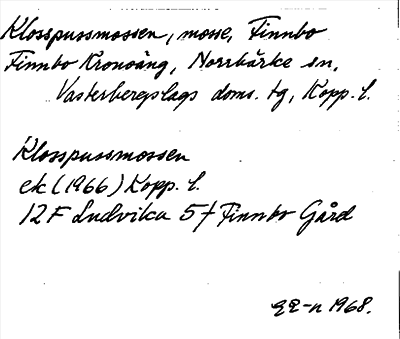 Klosspussmossen, mosse, Finnbo
Finnbo Kronoäng, Norrbärke sn,
Västerbergslags doms. tg, Kopp. l.
Klosspussmossen
ek (1966) Kopp. l.
12 F Ludvika 5 f Finnbo Gård
1968.